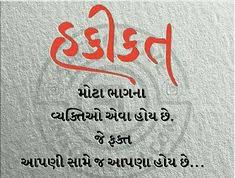 હકીકત
મોટા ભાગના
વ્યક્તિઓ એવા હોય છે.
જે ફક્ત
આપણી સામે જ આપણા હોય છે...